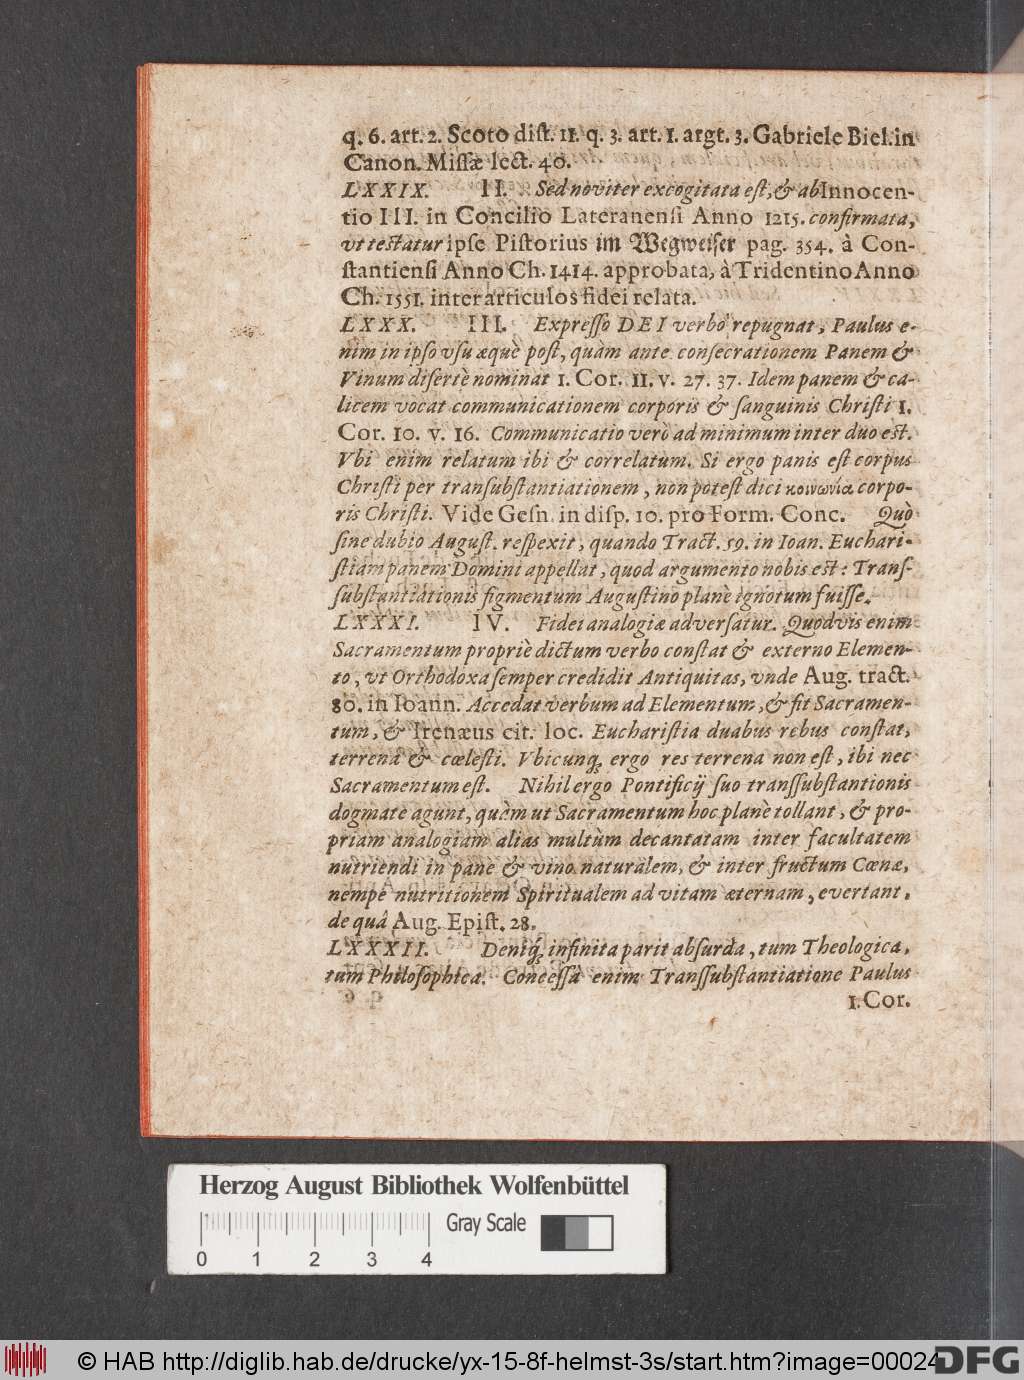 q. 6. art. 2. Scoto dist. 11. q. 3. art. 1. argt. 3. Gabriele Biel. in
Canon. Missæ lect. 40.
LXXIX. II. Sed noviter excogitata est, & ab Innocen-
tio III. in Concilio Lateranensi Anno 1215. confirmata,
vt testatur ipse Pistorius im Wegweiser pag. 354. à Con-
stantiensi Anno Ch. 1414. approbata, à Tridentino Anno
Ch. 1551. inter articulos fidei relata.
LXXX. III. Expresso DEI verbo repugnat, Paulus e-
nim in ipso vsu æquè post, quàm ante consecrationem Panem &
Vinum disertè nominat 1. Cor. 11. v. 27. 37. Idem panem & ca-
licem vocat communicationem corporis & sanguinis Christi 1.
Cor. 10. v. 16. Communicatio verò ad minimum inter duo est.
Vbi enim relatum ibi & correlatum. Si ergo panis est corpus
Christi per transubstantiationem, non potest dici κοινωνία corpo-
ris Christi. Vide Gesn. in disp. 10. pro Form. Conc. Quò
sine dubio August. respexit, quando Tract. 59. in Ioan. Euchari-
stiam panem Domini appellat, quod argumento nobis est: Trans-
substantiationis figmentum Augustino planè ignotum fuisse.
LXXXI. IV. Fidei analogiæ adversatur. Quodvis enim
Sacramentum propriè dictum verbo constat & externo Elemen-
to, vt Orthodoxa semper credidit Antiquitas, vnde Aug. tract.
80. in Ioann. Accedat verbum ad Elementum, & fit Sacramen-
tum, & Irenæus cit. loc. Eucharistia duabus rebus constat,
terrenâ & cœlesti. Vbicunq; ergo res terrena non est, ibi nec
Sacramentum est. Nihil ergo Pontificij suo transsubstantionis
dogmate agunt, quàm ut Sacramentum hoc planè tollant, & pro-
priam analogiam alias multùm decantatam inter facultatem
nutriendi in pane & vino naturalem, & inter fructum Cœnæ,
nempe nutritionem Spiritualem ad vitam æternam, evertant,
de quâ Aug. Epist. 28.
LXXXII. Deniq; infinita parit absurda, tum Theologica,
tum Philosophica. Concessâ enim Transsubstantiatione Paulus
1. Cor.
Herzog August Bibliothek Wolfenbüttel
Gray Scale
0 1 2 3 4
© HAB http://diglib.hab.de/drucke/yx-15-8f-helmst-3s/start.htm?image=00024
DFG